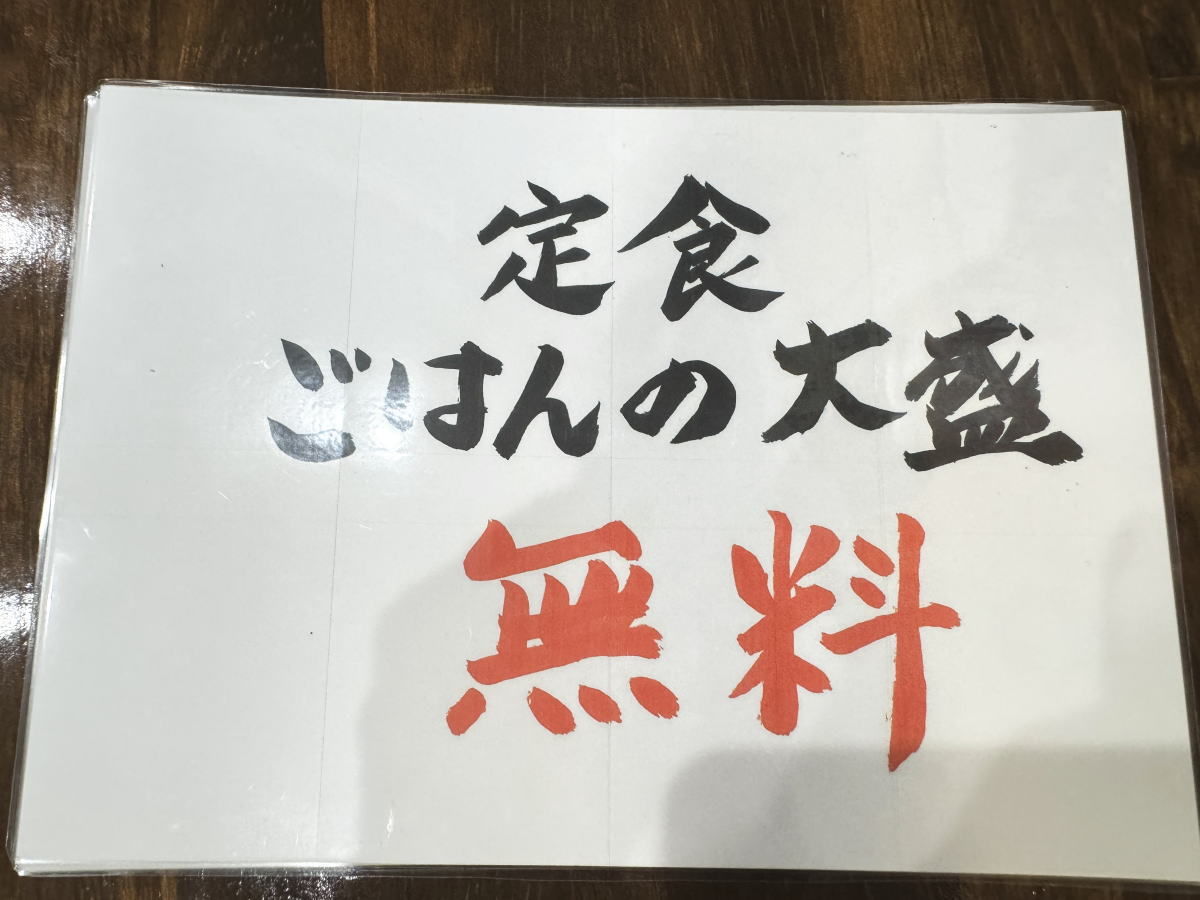 定食
ごはんの大盛
無料